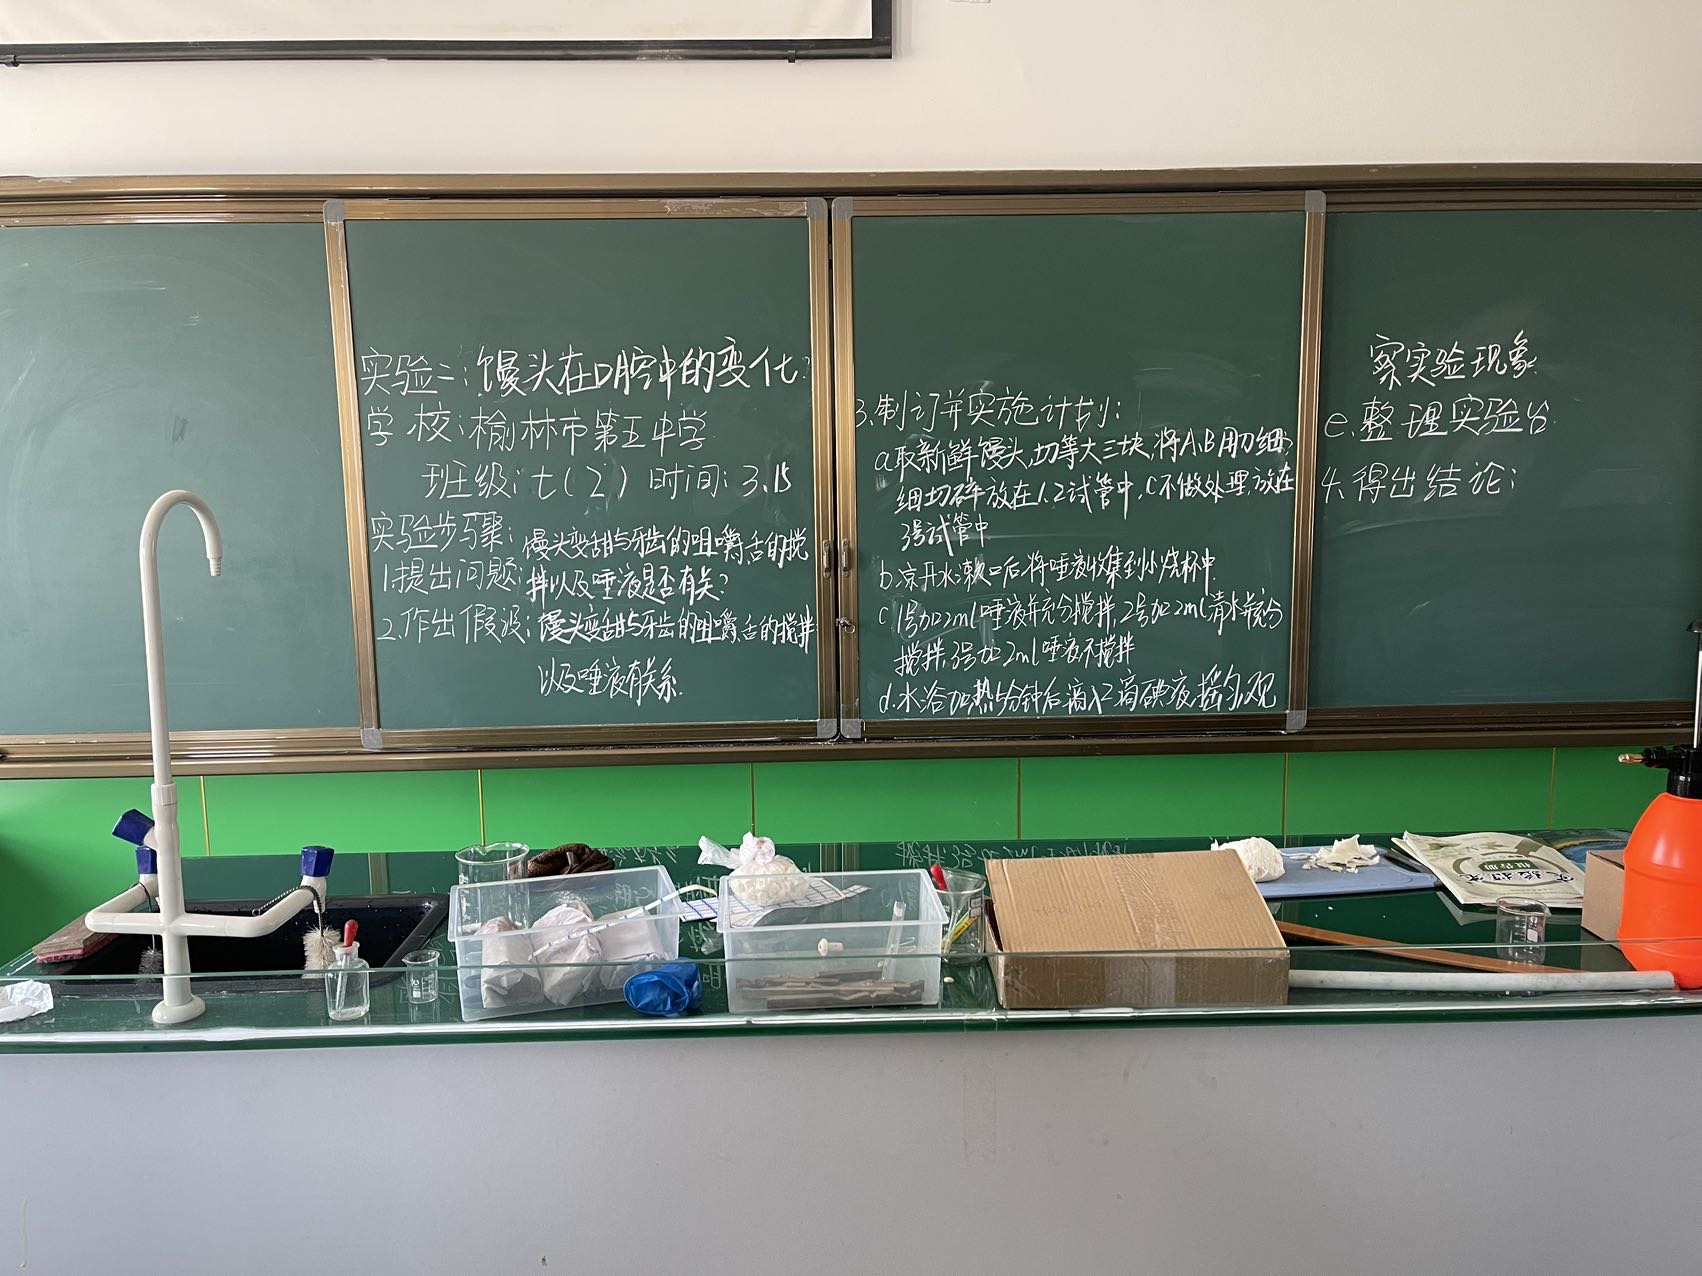 实验二:馒头在口腔中的变化?
学校:榆林市第五中学
班级:七(2) 时间:3.15
实验步骤:
1.提出问题:馒头变甜与牙齿的咀嚼,舌的搅
拌以及唾液是否有关?
2.作出假设:馒头变甜与牙齿的咀嚼,舌的搅拌
以及唾液有关系.
3.制订并实施计划:
a.取新鲜馒头,切等大三块,将A、B用刀细
细切碎放在1.2试管中,C不做处理,放在
3号试管中
b.凉开水漱口后,将唾液收集到小烧杯中.
c 1号加2ml唾液并充分搅拌,2号加2ml清水并充分
搅拌,3号加2ml唾液不搅拌
d.水浴加热5分钟后滴入2滴碘液,摇匀,观
察实验现象
e.整理实验台.
4.得出结论:
实验探究
报告册